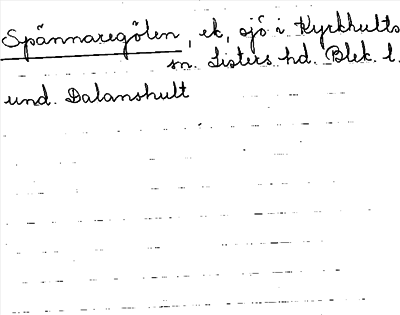 Spännaregölen, ek, sjö i Kyrkhults
sn. Listers hd. Blek. l.
und. Dalanshult